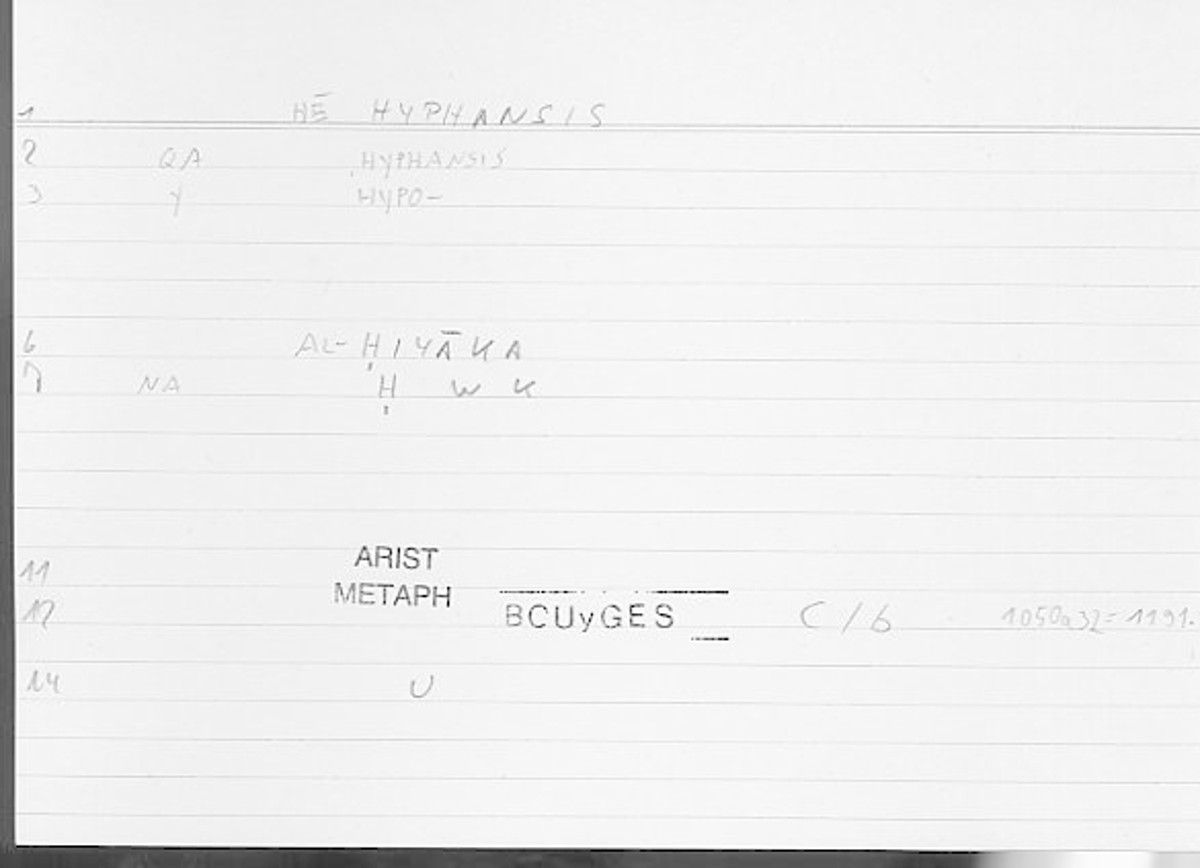 1 HĒ HYPHANSIS
2 QA HYPHANSIS
3 Y HYPO-
6 AL-ḤIYĀKA
7 NA Ḥ W K
11 ARIST
METAPH
12 BCUyGES C/b 1050a32=1191.
14 U